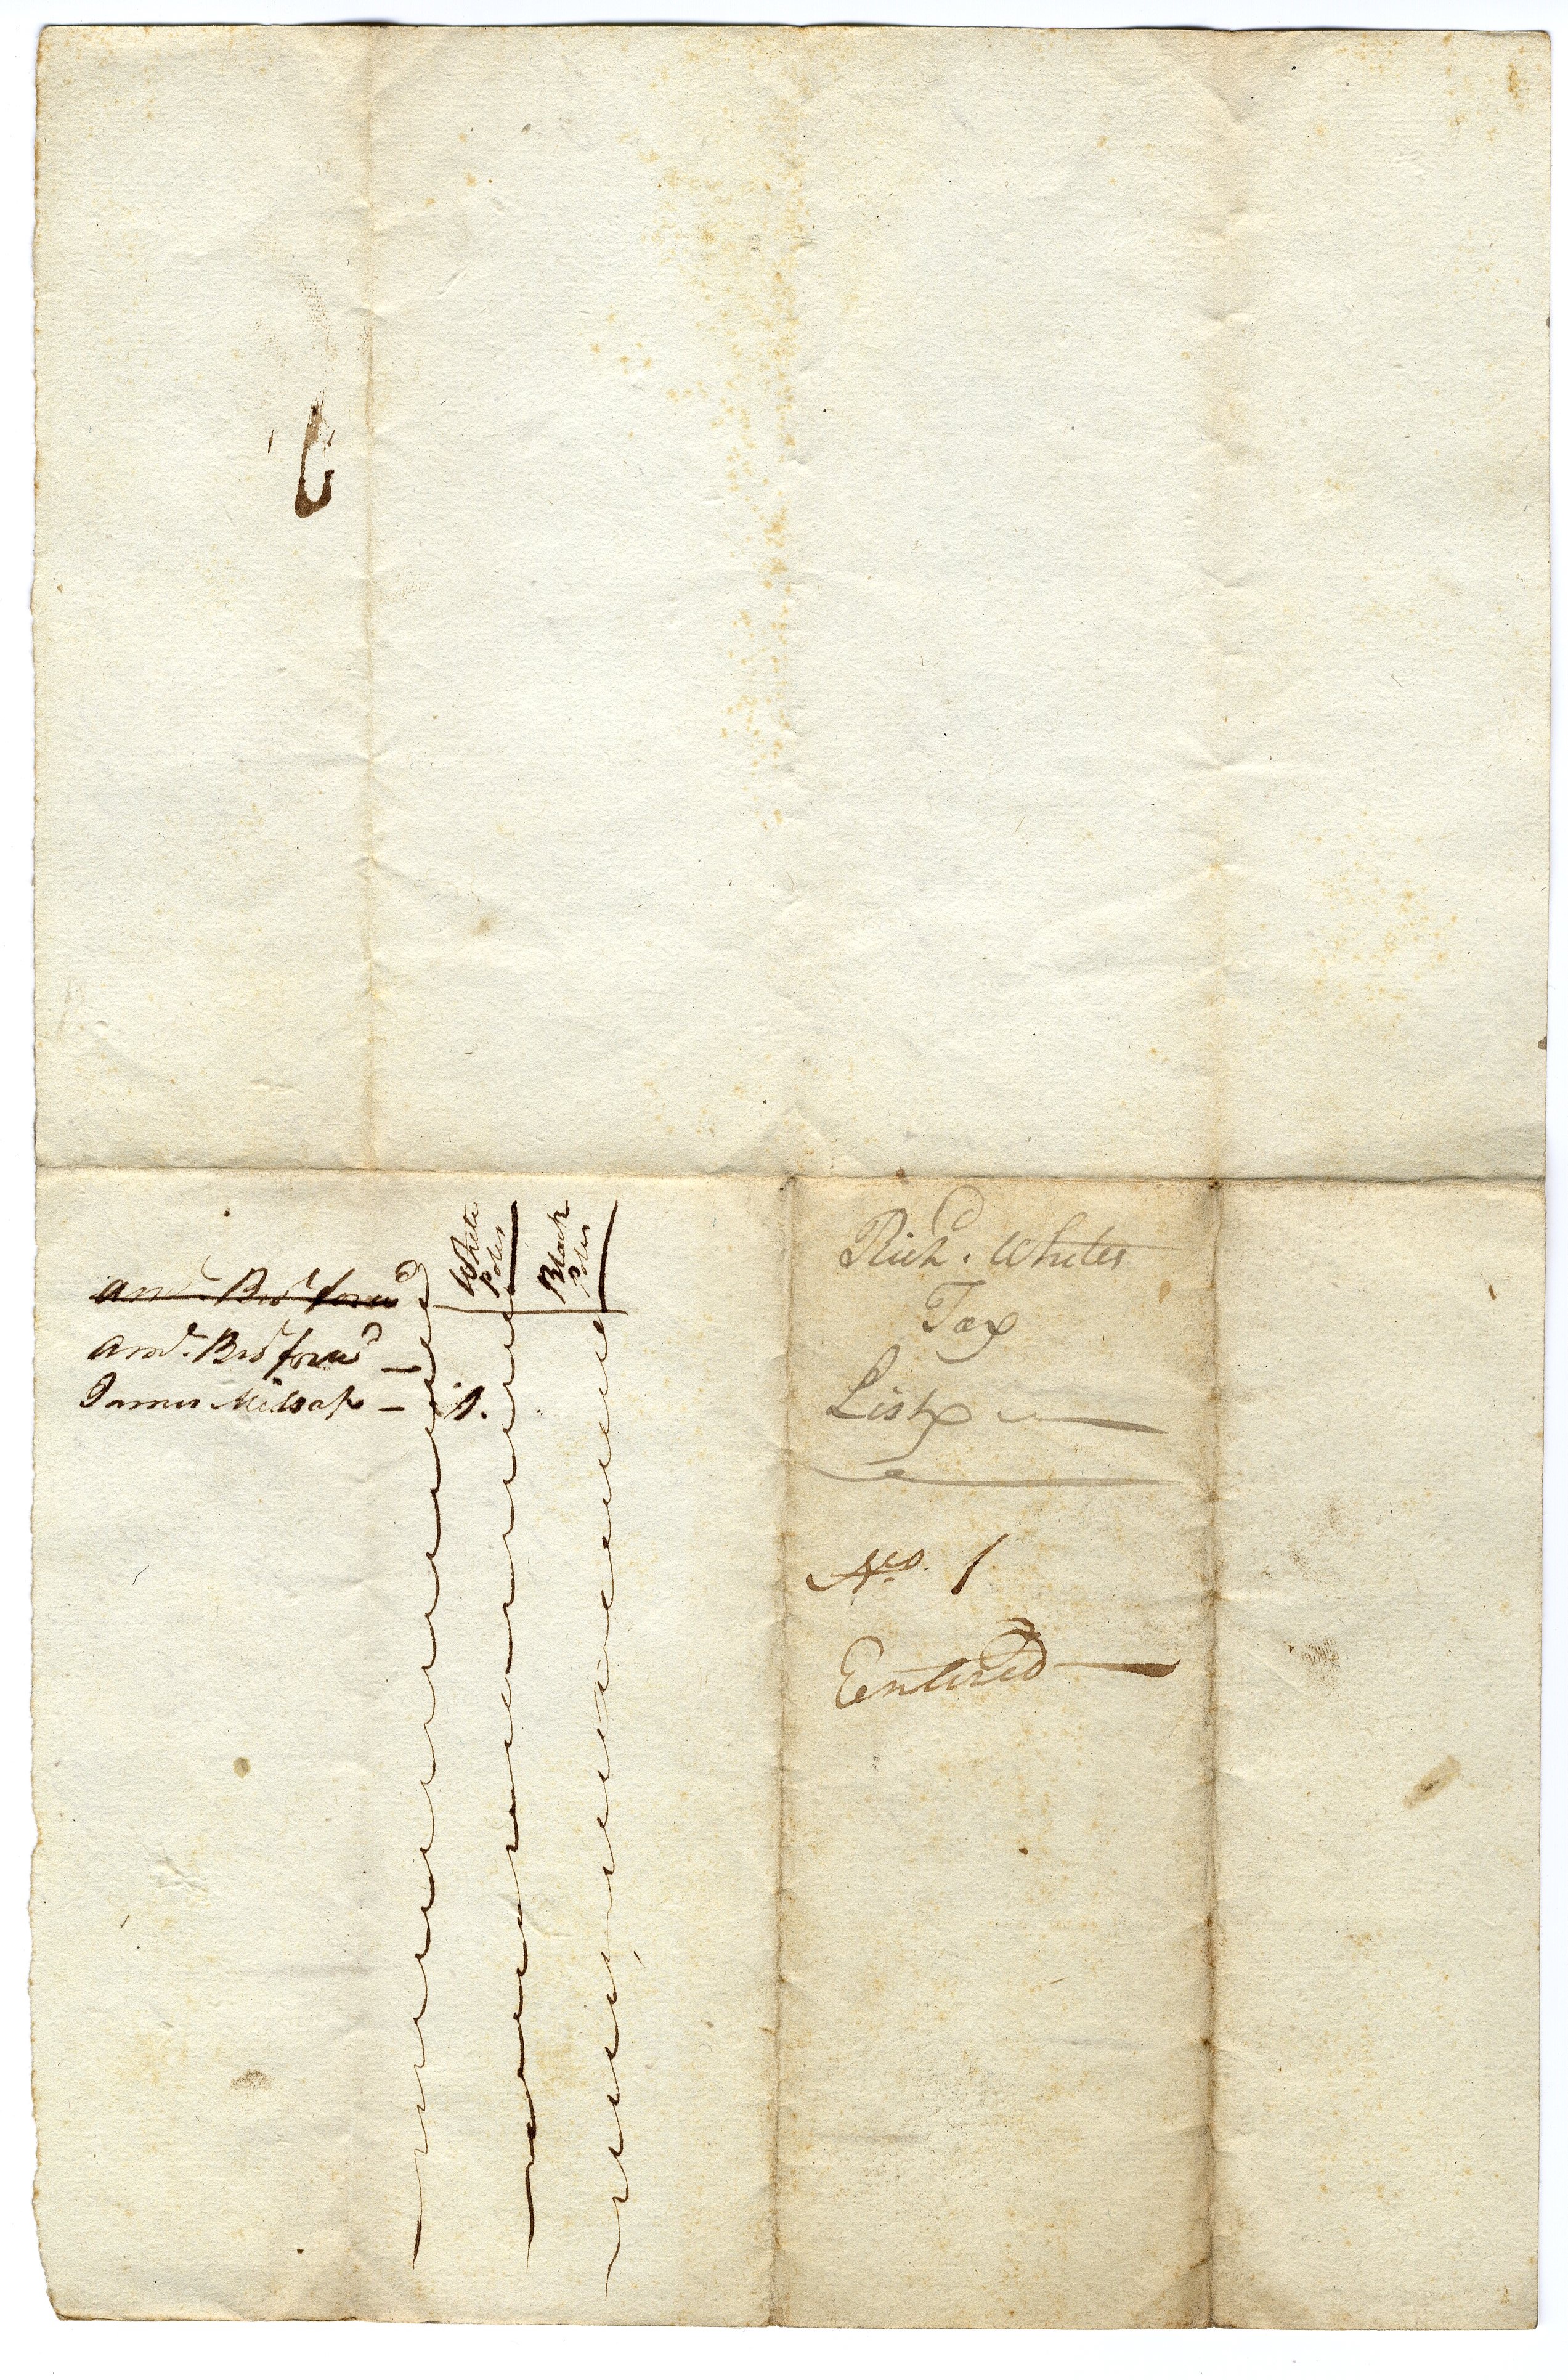 White
Poles
Black
Poles
Amt. Brot forwd
Amt. Brot forwd —
James Milsap — 1.
Richd. Whites
Tax
List
No. 1
Entered